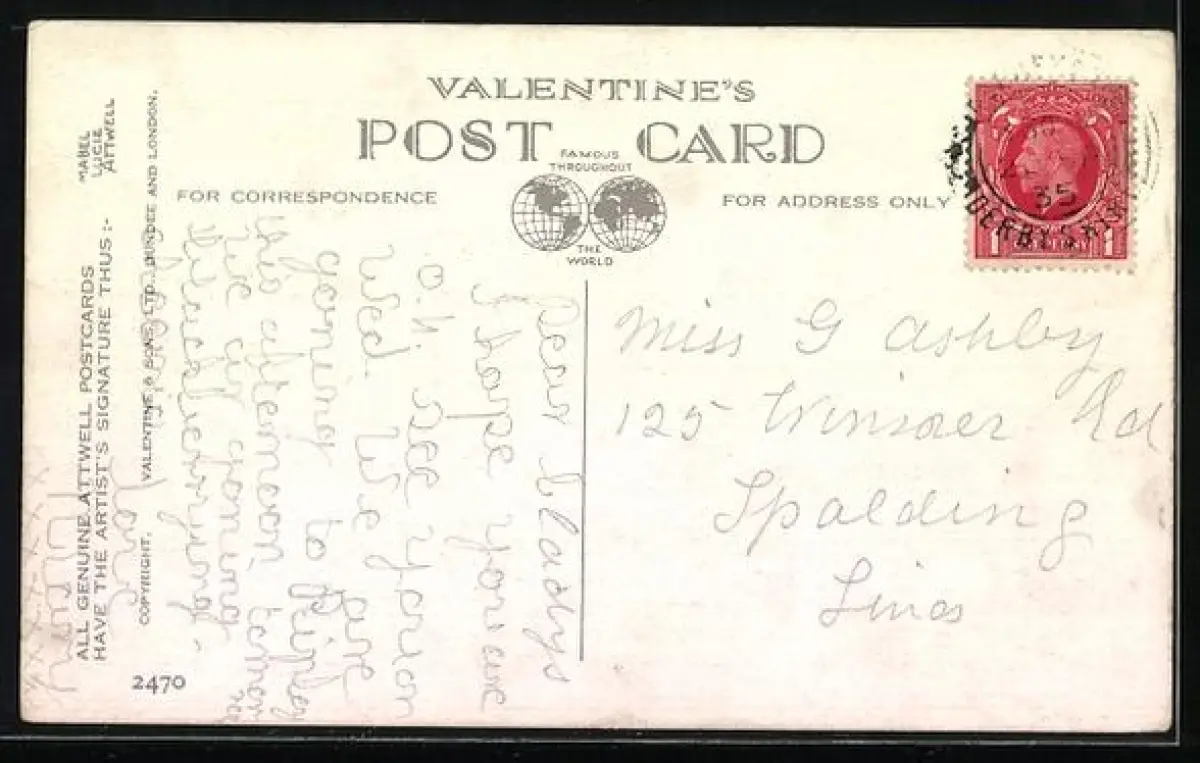 VALENTINE'S
POST CARD
FAMOUS
THROUGHOUT
THE
WORLD
FOR CORRESPONDENCE
FOR ADDRESS ONLY
35
DERBYSHIRE
1 1
Miss G Ashby
125 Winsder Rd
Spalding
Lincs
Dear Gladys
I hope you are
O.K. See you on
Wed. We are
going to Ripley
this afternoon, tomor
we are going
blackberrying.
Love
x x x x x
MABEL
LUCIE
ATTWELL
ALL GENUINE ATTWELL POSTCARDS
HAVE THE ARTIST'S SIGNATURE THUS :-
COPYRIGHT. VALENTINE & SONS, LTD., DUNDEE AND LONDON.
2470